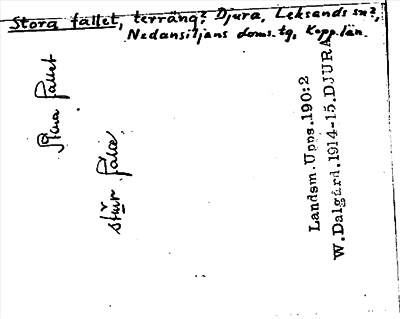 Stora fallet, terräng? Djura, Leksands sn?,
Nedansiljans doms. tg, Kopp. län.
Stora fallet
stūr fałɛ
Landsm. Upps. 190:2
W. Dalgård. 1914-15. DJURA